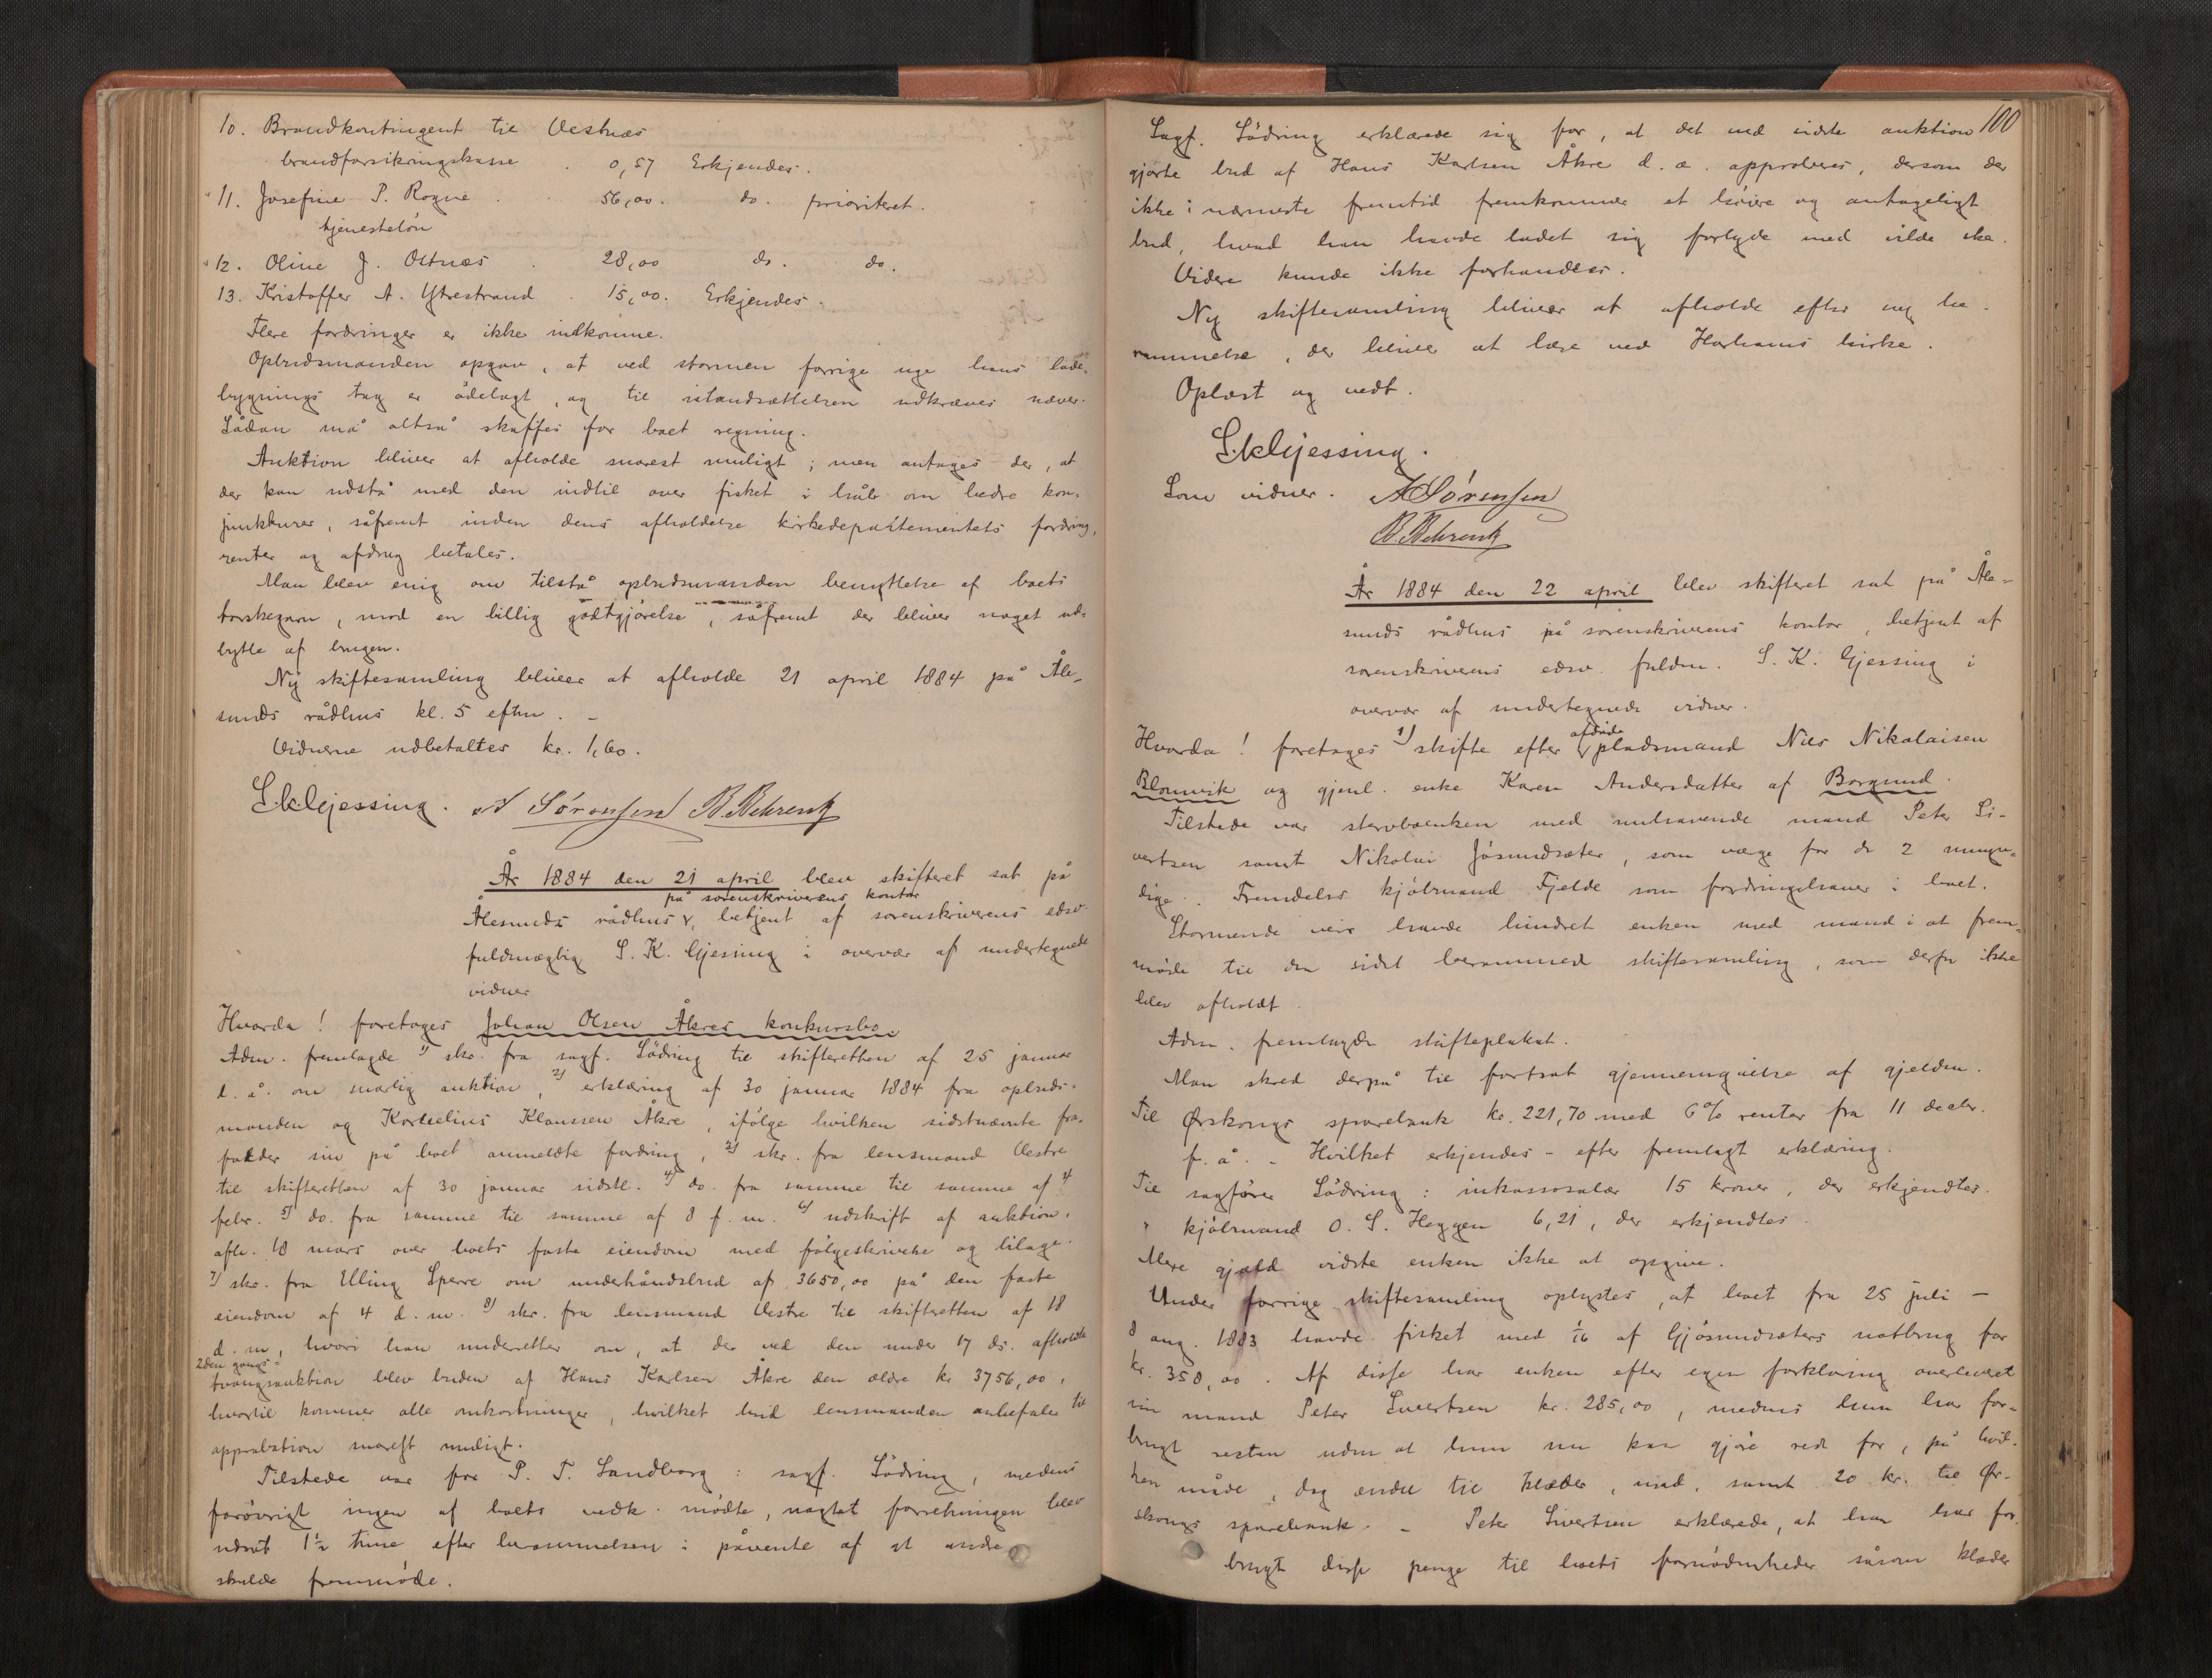 10. Brandkontingent til Vestnes
brandforsikringskasse . 0,57 Erkjendes.
11. Josefine P. Rogne . . 56,00. do. prioriteret.
tjenesteløn
12. Oline J. Ostnes . 28,00 do. do.
13. Kristoffer A. Ytrestrand . 15,00. Erkjendes.
Flere fordringer er ikke indkomne.
Opbudsmanden opgav, at ved stormen forrige uge hans lade-
bygnings tag er ødelagt, og til istandsættelsen udkræves næver.
Sådan må altså skaffes for boet regning.
Auktion bliver at afholde snarest muligt; men antages der, at
der kan udstå med den indtil over fisket i håb om bedre kon-
junkturer, såfremt inden dens afholdelse kirkedepartementets fordring,
renter og afdrag betales.
Man blev enig om tilstå opbudsmanden benyttelse af boets
torskegarn, mod en billig godtgjørelse, såfremt der bliver noget ud-
bytte af brugen.
Ny skiftesamling bliver at afholde 21 april 1884 på Åle-
sunds rådhus kl. 5 efterm. –
Vidnerne udbetaltes kr. 1,60.
S.K.Gjessing. A Sørensen B. Behrentz
År 1884 den 21 april blev skifteret sat på
på sorenskriverens kontor
Ålesunds rådhus, betjent af sorenskriverens edsv.
fuldmægtig S. K. Gjessing i overvær af undertegnede
vidner
Hvorda! foretages Johan Olsen Åkres konkursbo.
Adm. fremlagde 1) skr. fra sagf. Lødring til skifteretten af 25 januar
d. å. om snarlig auktion, 2) erklæring af 30 januar 1884 fra opbuds-
manden og Kornelius Klaussen Åkre, ifølge hvilken sidstnævnte fra-
falder sin på boet anmeldte fordring, 3) skr. fra lensmand Vestre
til skifteretten af 30 januar sidstl. 4) do. fra samme til samme af 4
febr. 5) do. fra samme til samme af 8 f. m. 6) udskrift af auktion,
afh. 18 mars over boets faste eiendom med følgeskrivelse og bilage.
7) skr. fra Elling Sperre om underhåndsbud af 3650,00 på den faste
eiendom af 4 d. m. 8) skr. fra lensmand Vestre til skifteretten af 18
d. m, hvori han underretter om, at der ved den under 17 ds. afholdte
2den gangs-
tvangsauktion blev buden af Hans Karlsen Åkre den ældre kr 3756,00,
hvortil kommer alle omkostninger, hvilket bud lensmanden anbefaler til
approbation snarest muligt.
Tilstede var for P. T. Sandborg: sagf. Lødring, medens
forøvrigt ingen af boets vedk. mødte, uagtet forretningen blev
udsat 1½ time efter berammelsen i påvente af at andre
skulde fremmøde.
100
Sagf. Lødring erklærede sig for, at det ved sidste auktion
gjorte bud af Hans Karlsen Åkre d. æ. approberes, dersom der
ikke i nærmeste fremtid fremkommer et høiere og antageligt
bud, hvad han havde ladet sig forlyde med vilde ske.
Videre kunde ikke forhandles.
Ny skiftesamling bliver at afholde efter ny be-
rammelse, der bliver at læse ved Harhams kirke.
Oplæst og vedt.
S.K.Gjessing.
Som vidner. A Sørensen
B. Behrentz
År 1884 den 22 april blev skifteret sat på Åle-
sunds rådhus på sorenskriverens kontor, betjent af
sorenskriverens edsv. fuldm. S. K. Gjessing i
overvær af undertegnede vidner.
afdøde
Hvorda! foretages 1) skifte efter pladsmand Nils Nikolaisen
Blomvik og gjenl. enke Karen Andersdatter af Borgund.
Tilstede var stervboenken med nuhavende mand Peter Si-
vertsen samt Nikolai Gjøsundsæter, som værge for de 2 umyn-
dige. Fremdeles kjøbmand Fjelde som fordringshaver i boet.
Stormende veir havde hindret enken med mand i at frem-
møde til den sidst berammed skiftesamling, som derfor ikke
blev afholdt.
Adm. fremlagde skifteplakat.
Man skred derpå til fortsat gjennemgåelse af gjelden.
Til Ørskougs sparebank kr. 221,70 med 6% renter fra 11 decbr.
f. å. – Hvilket erkjendes – efter fremlagt erklæring.
Til sagfører Lødring: inkassosalær 15 kroner, der erkjendtes.
" kjøbmand O. S. Heggen 6,21, der erkjendtes.
Mere gjæld vidste enken ikke at opgive.
Under forrige skiftesamling oplystes, at boet fra 25 juli –
8 aug. 1883 havde fisket med 1/16 af Gjøsundsæters notbrug for
kr. 350,00. Af disse har enken efter egen forklaring overleveret
sin mand Peter Sivertsen kr. 285,00, medens hun har for-
brugt resten uden at hun nu kan gjøre rede for, på hvil-
ken måde, dog endel til klæder, mad, samt 20 kr. til Ør-
skougs sparebank. – Peter Sivertsen erklærede, at han har for-
brugt disse penge til boets fornødenheder såsom klæder